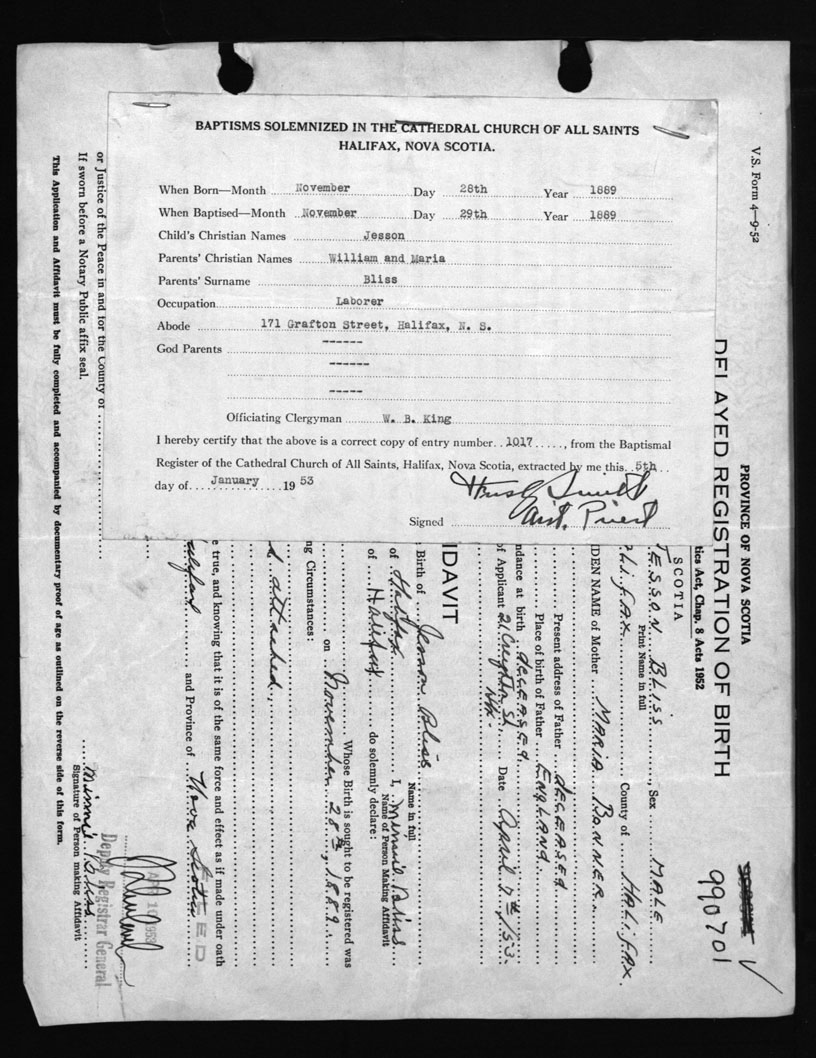 BAPTISMS SOLEMNIZED IN THE CATHEDRAL CHURCH OF ALL SAINTS
HALIFAX, NOVA SCOTIA.
When Born—Month November Day 28th Year 1889
When Baptised—Month November Day 29th Year 1889
Child's Christian Names Jesson
Parents' Christian Names William and Maria
Parents' Surname Bliss
Occupation Laborer
Abode 171 Grafton Street, Halifax, N. S.
God Parents ------
------
-----
Officiating Clergyman W. B. King
I hereby certify that the above is a correct copy of entry number 1017, from the Baptismal
Register of the Cathedral Church of All Saints, Halifax, Nova Scotia, extracted by me this 5th
day of January 19 53
Signed
V.S. Form 4—9-52
990701
PROVINCE OF NOVA SCOTIA
DELAYED REGISTRATION OF BIRTH
tics Act, Chap. 8 Acts 1952
SCOTIA
JESSON BLISS, Sex MALE
Print Name in full
LIFAX County of HALIFAX.
IDEN NAME of Mother MARIA BONNER.
Present address of Father DECEASED
Place of birth of Father ENGLAND.
ndance at birth DECEASED
of Applicant 21 Creighton St Date April 7th/53.
Hfx.
IDAVIT
Birth of Jesson Bliss
Name in full
of Halifax I, Minnie Bliss
Name of Person Making Affidavit
of Halifax do solemnly declare:
Whose Birth is sought to be registered was
on November 28th, 1889.
ng Circumstances:
attached.
e true, and knowing that it is of the same force and effect as if made under oath
alifax and Province of Nova Scotia
FILED
APR 1 1953
Deputy Registrar General
Minnie Bliss
Signature of Person making Affidavit
or Justice of the Peace in and for the County of
If sworn before a Notary Public affix seal.
This Application and Affidavit must be fully completed and accompanied by documentary proof of age as outlined on the reverse side of this form.